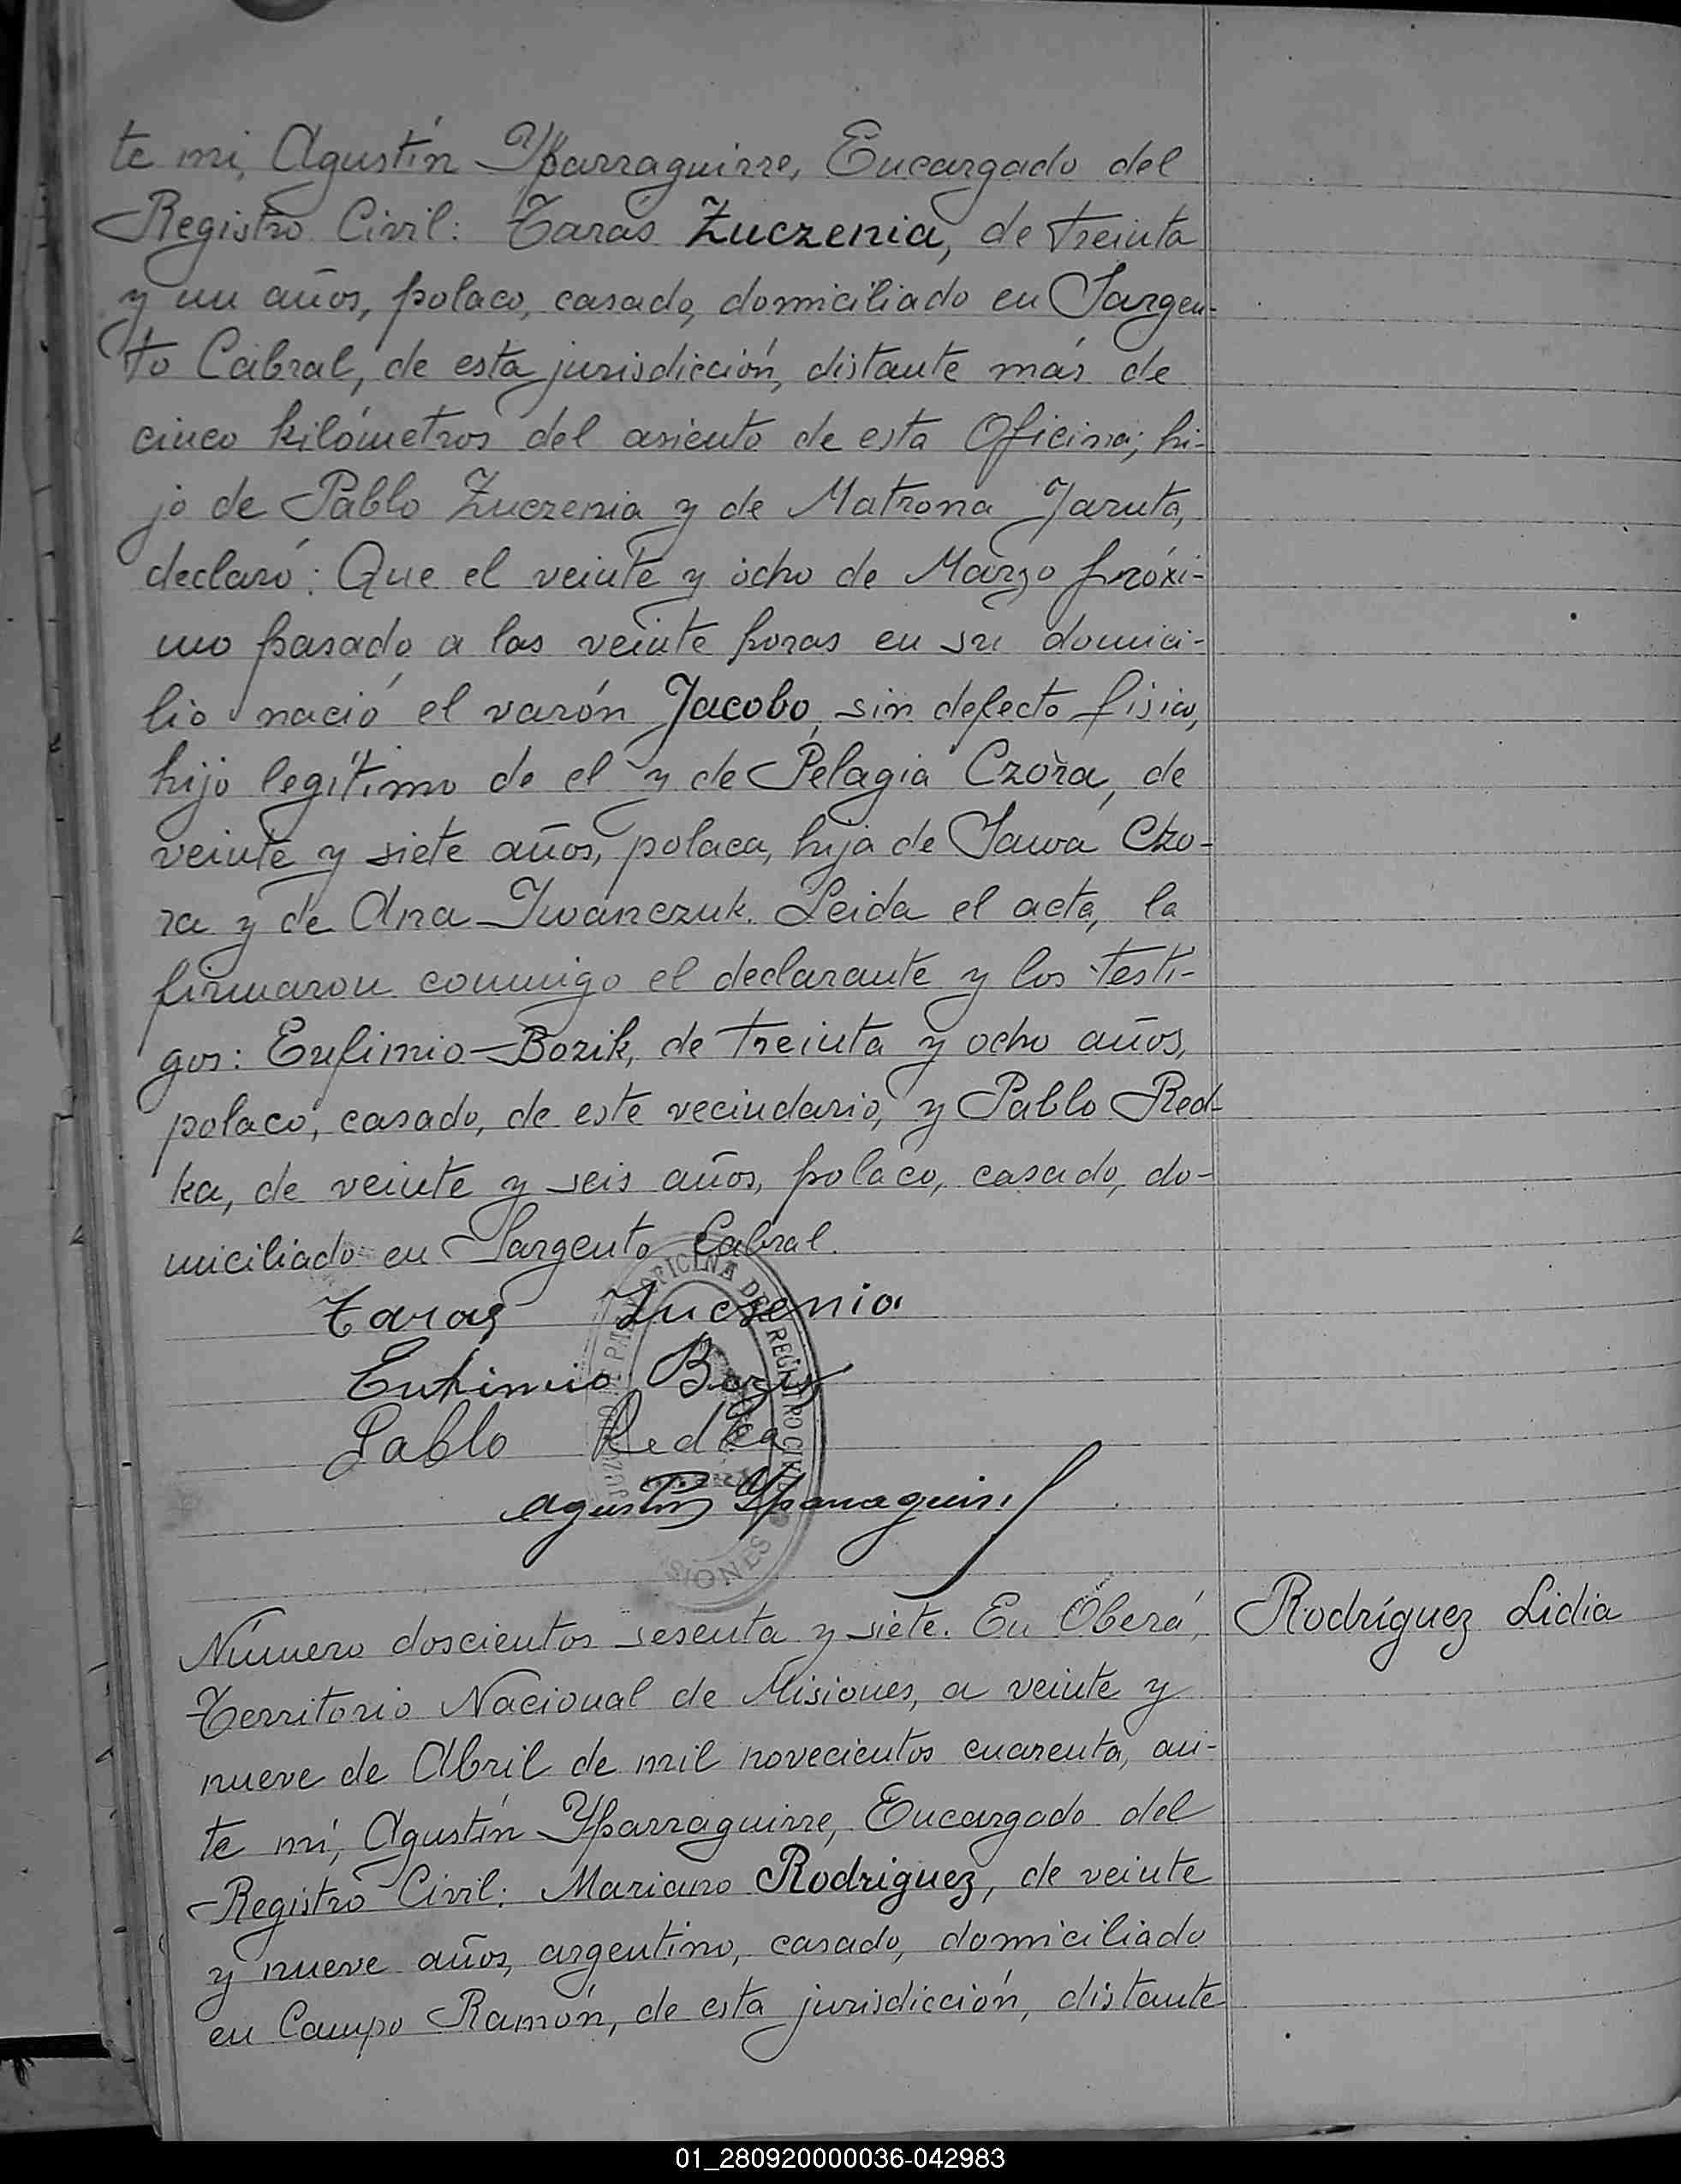 te mi, Agustín Yparraguirre, Encargado del
Registro Civil: Tarás Zuczenia, de treinta
y un años, polaco, casado, domiciliado en Sargen-
to Cabral, de esta jurisdicción, distante más de
cinco kilómetros del asiento de esta Oficina; hi-
jo de Pablo Zuczenia y de Matrona Jaruta,
declaró: Que el veinte y ocho de Marzo próxi-
mo pasado a las veinte horas en su domici-
lio nació el varón Jacobo, sin defecto físico,
hijo legítimo de el y de Pelagia Czora, de
veinte y siete años, polaca, hija de Sawa Czo-
ra y de Ana Iwanczuk. Leida el acta, la
firmaron conmigo el declarante y los testi-
gos: Eufimio Bozik, de treinta y ocho años,
polaco, casado, de este vecindario, y Pablo Red-
ka, de veinte y seis años, polaco, casado, do-
miciliado en Sargento Cabral.
OFICINA DEL REGISTRO CIVIL
Taras Zuczenia
Eufimio
Pablo Redka
Agustín Yparraguirre
MISIONES
Número doscientos sesenta y siete. En Oberá, Rodríguez Lidia
Territorio Nacional de Misiones, a veinte y
nueve de Abril de mil novecientos cuarenta, an-
te mí, Agustín Yparraguirre, Encargado del
Registro Civil: Mariano Rodriguez, de veinte
y nueve años, argentino, casado, domiciliado
en Campo Ramón, de esta jurisdicción, distante
01_280920000036-042983